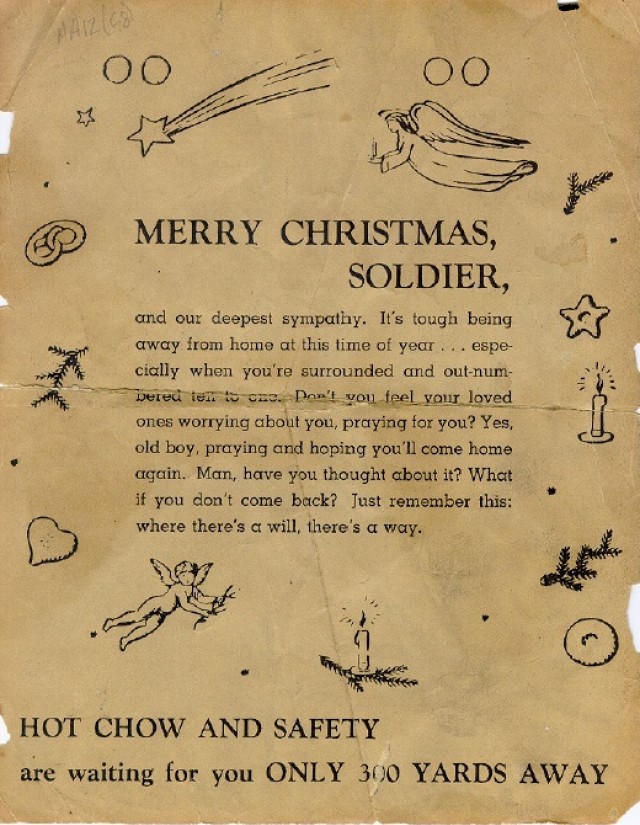 MERRY CHRISTMAS,
SOLDIER,
and our deepest sympathy. It's tough being
away from home at this time of year . . . espe-
cially when you're surrounded and out-num-
bered ten to one. Don't you feel your loved
ones worrying about you, praying for you? Yes,
old boy, praying and hoping you'll come home
again. Man, have you thought about it? What
if you don't come back? Just remember this:
where there's a will, there's a way.
HOT CHOW AND SAFETY
are waiting for you ONLY 300 YARDS AWAY